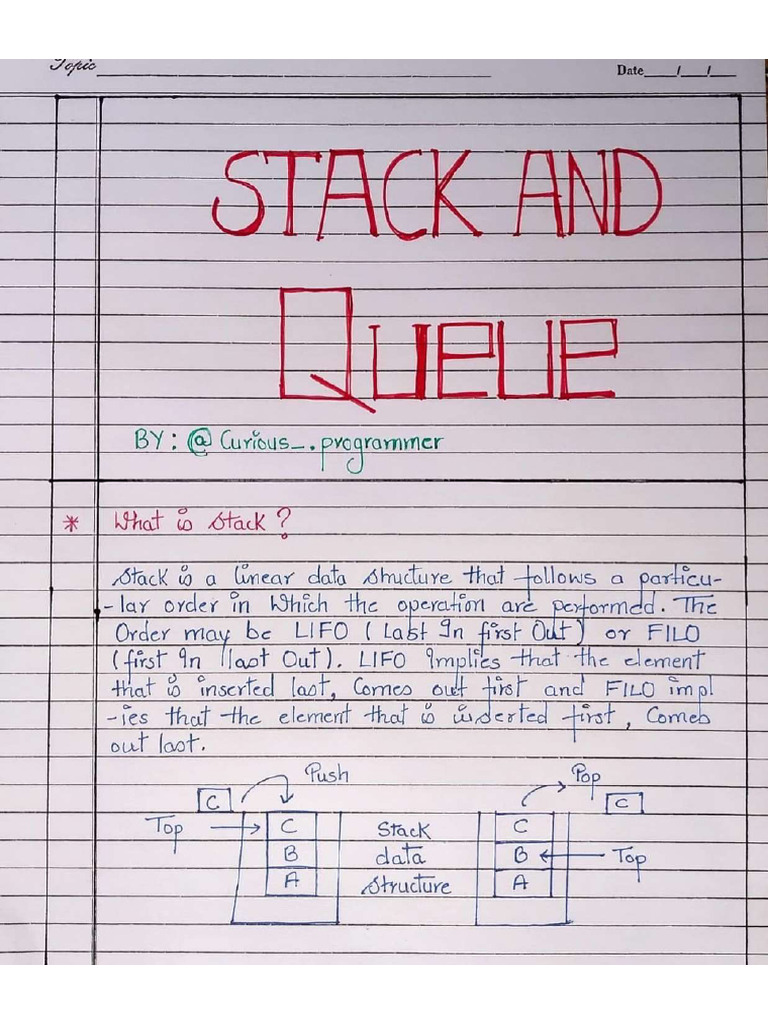 Topic
Date / /
STACK AND
QUEUE
BY: @Curious_.programmer
* What is Stack?
Stack is a linear data structure that follows a particu-
-lar order in which the operation are performed. The
Order may be LIFO (Last In first Out) or FILO
(first In last Out). LIFO implies that the element
that is inserted last, Comes out first and FILO impl
-ies that the element that is inserted first, Comes
out last.
Push
Pop
C
C
Top
C
Stack
C
B
data
B
Top
A
structure
A